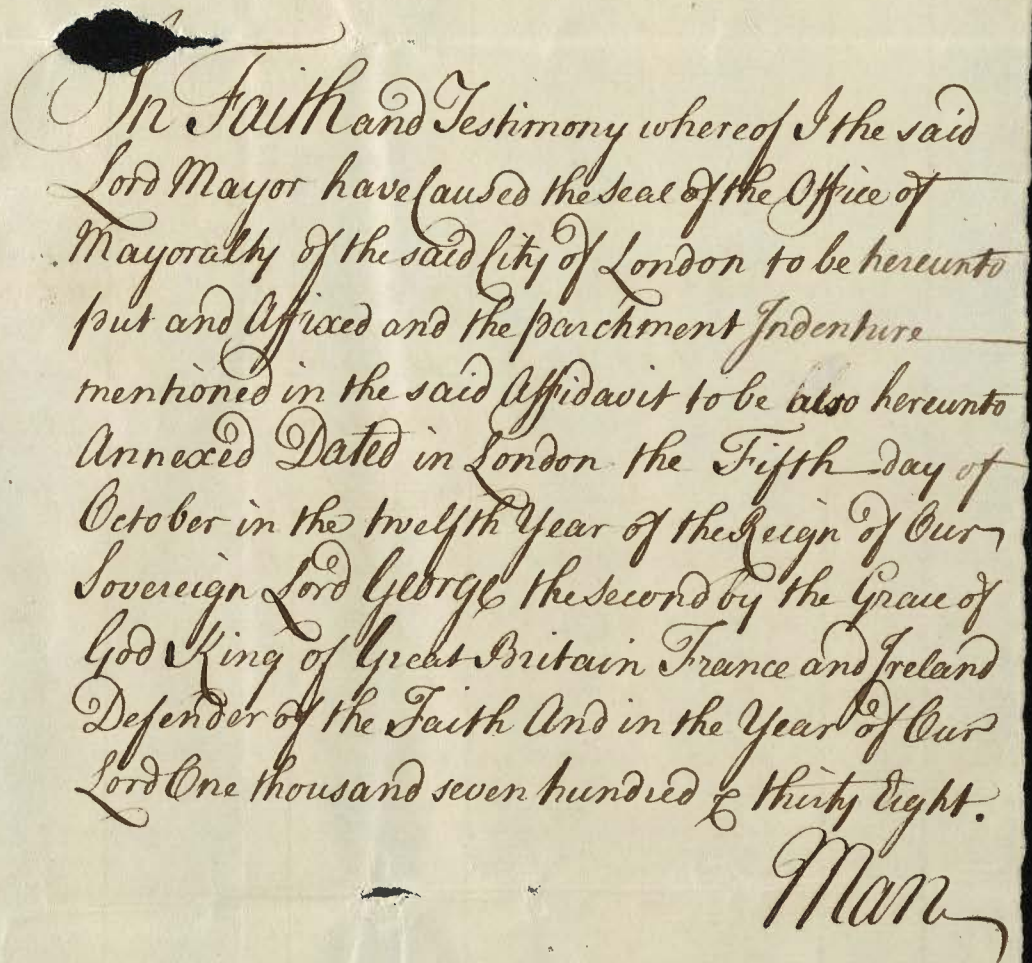 In Faith and Testimony whereof I the said
Lord Mayor have Caused the seal of the Office of
Mayoralty of the said City of London to be hereunto
put and Affixed and the parchment Indenture
mentioned in the said Affidavit to be also hereunto
Annexed Dated in London the Fifth day of
October in the twelfth Year of the Reign of Our
Sovereign Lord George the second by the Grace of
God King of Great Britain France and Ireland
Defender of the Faith And in the Year of Our
Lord One thousand seven hundred & thirty Eight.
Man